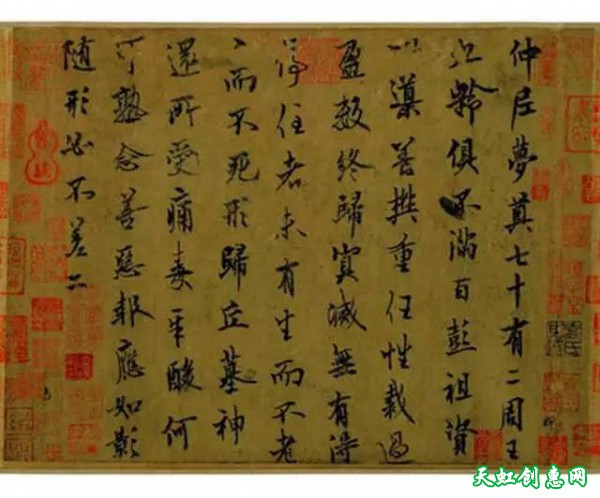 仲尼夢奠七十有二周王
九齡俱不滿百彭祖資
以導養樊重任性裁過
盈數終歸冥滅無有得
停住者未有生而不老
老而不死形歸丘墓神
還所受痛毒辛酸何
可熟念善惡報應如影
隨形必不差二
天虹创惠网